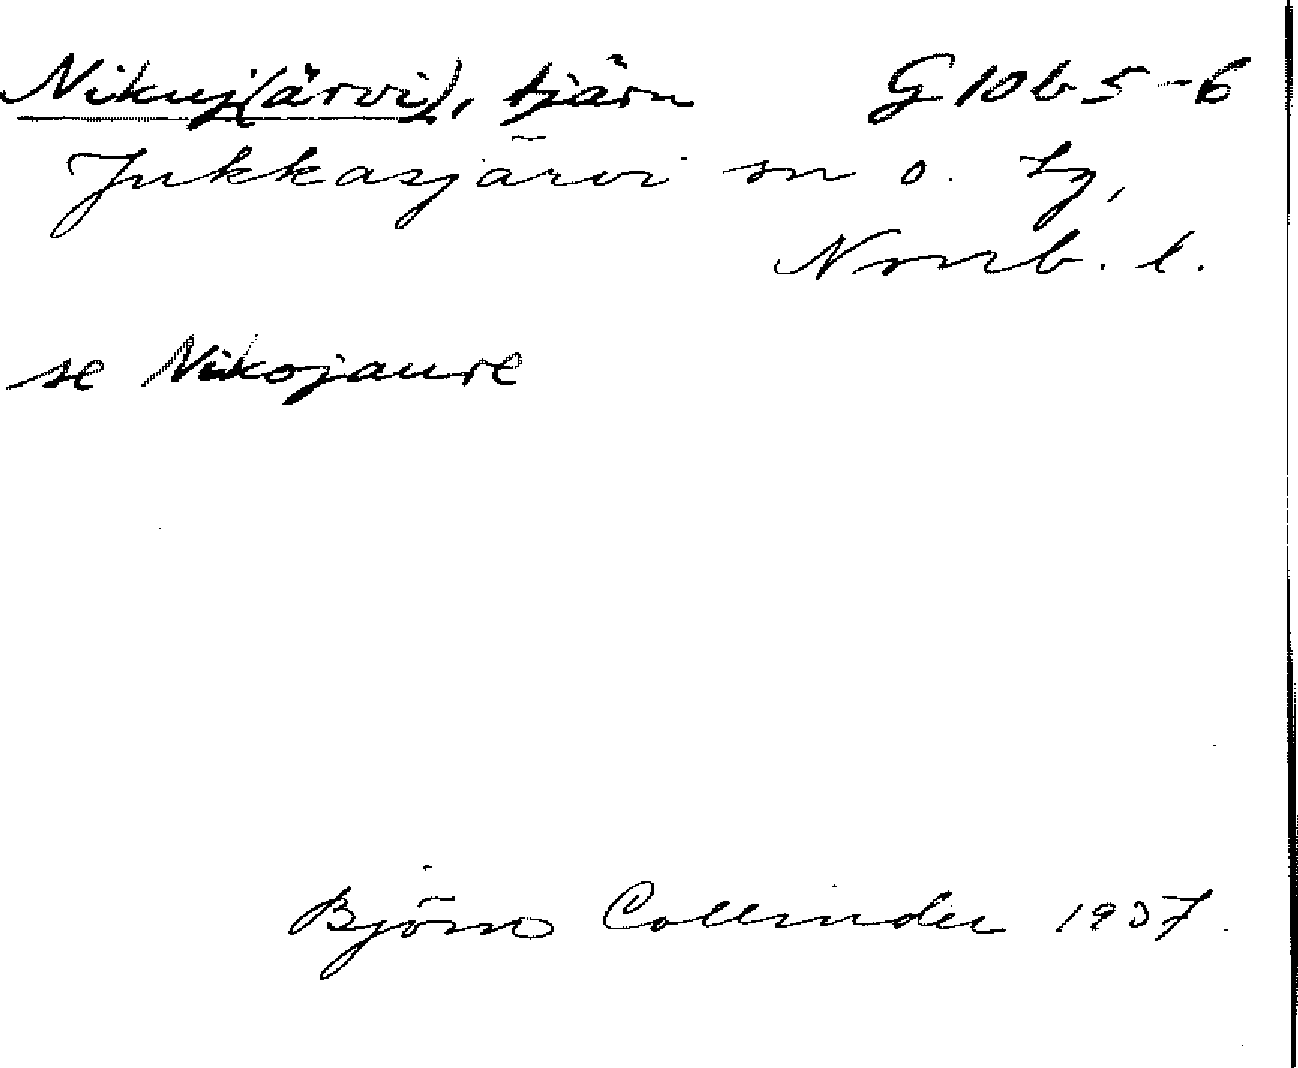 Nikuj(ärvi), tjärn G 10 b 5-6
Jukkasjärvi sn o. tg,
Norrb. l.
se Nikojaure
Björn Collinder 1937.